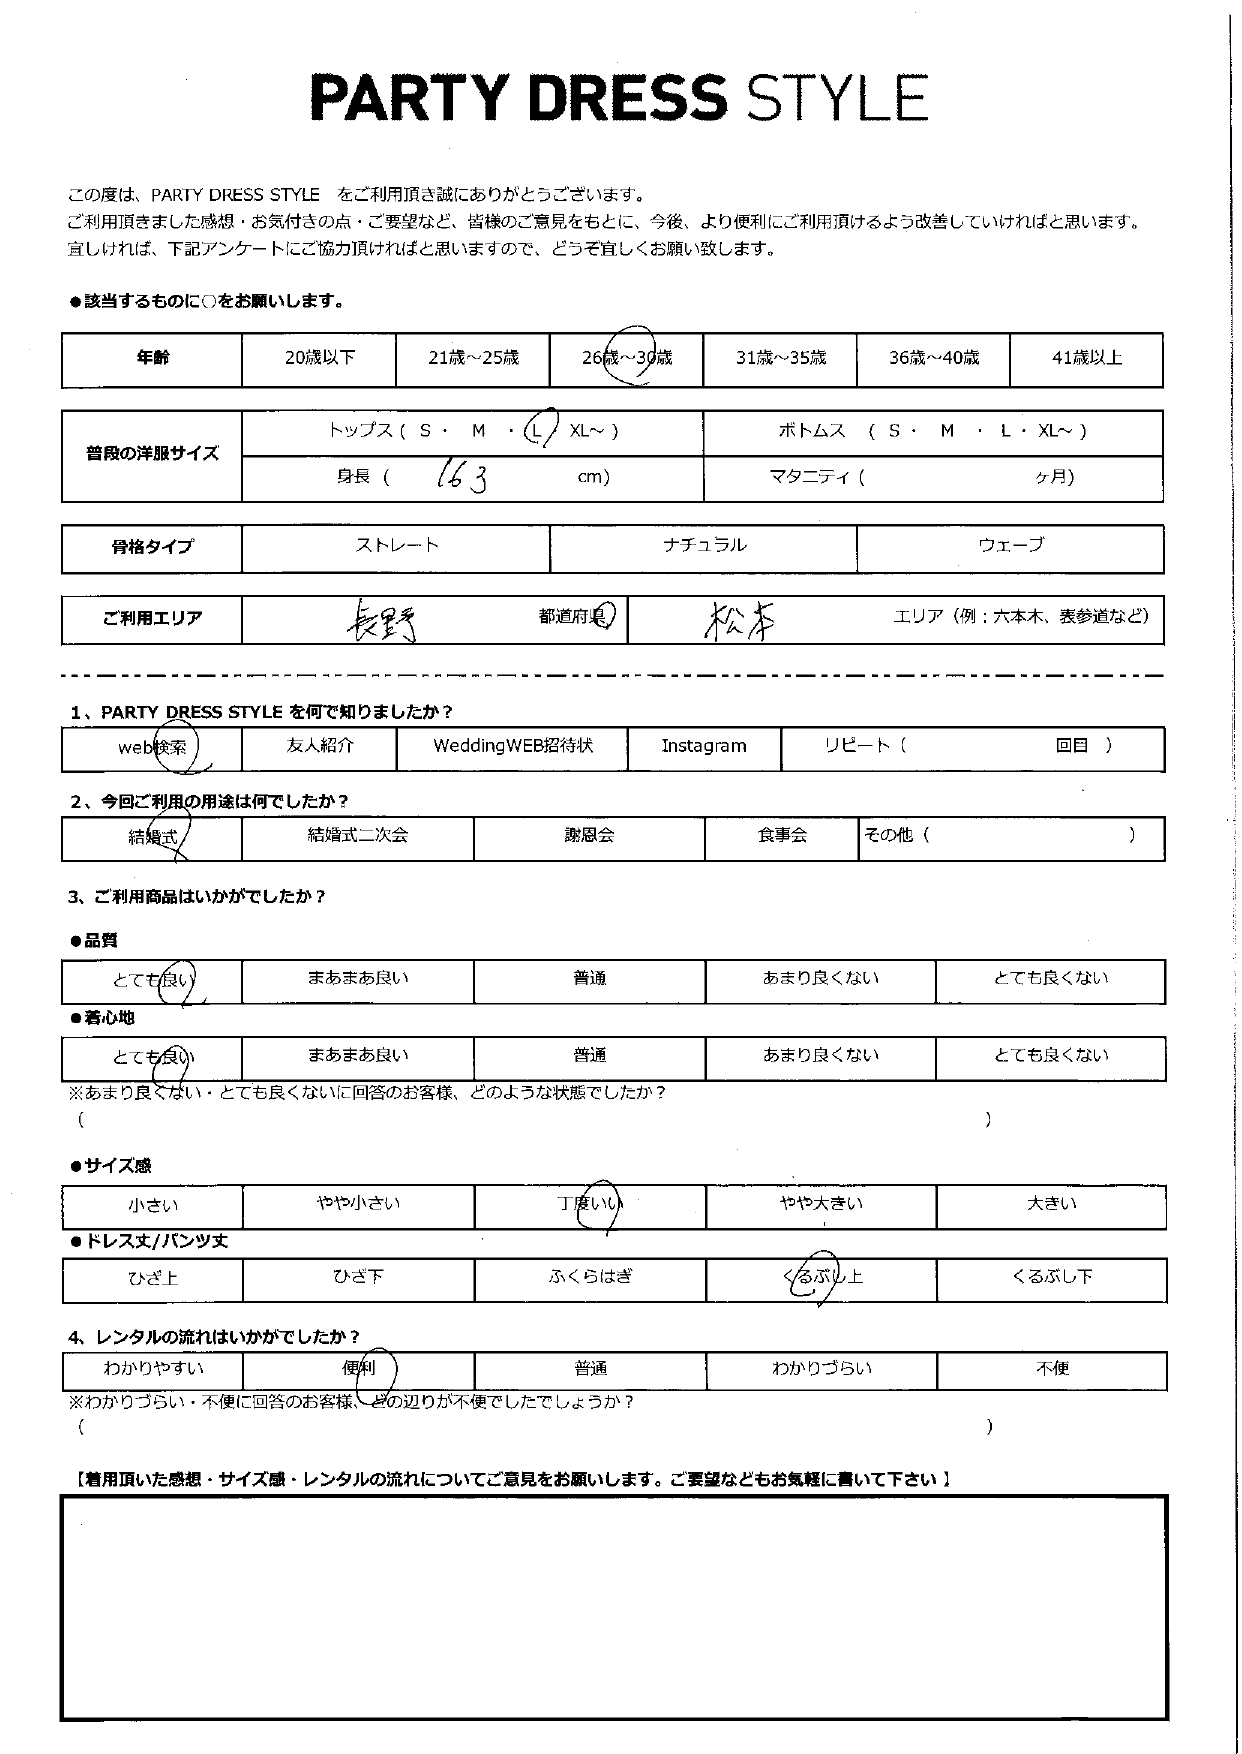 PARTY DRESS STYLE
この度は、PARTY DRESS STYLE をご利用頂き誠にありがとうございます。
ご利用頂きました感想・お気付きの点・ご要望など、皆様のご意見をもとに、今後、より便利にご利用頂けるよう改善していければと思います。
宜しければ、下記アンケートにご協力頂ければと思いますので、どうぞ宜しくお願い致します。
●該当するものに○をお願いします。
年齢 20歳以下 21歳～25歳 26歳～30歳 31歳～35歳 36歳～40歳 41歳以上
普段の洋服サイズ
トップス ( S ・ M ・ L XL～ ) ボトムス ( S ・ M ・ L ・ XL～ )
身長 ( 163 cm) マタニティ ( ヶ月)
骨格タイプ ストレート ナチュラル ウェーブ
ご利用エリア 長野 都道府県 松本 エリア（例：六本木、表参道など）
1、PARTY DRESS STYLE を何で知りましたか？
web検索 友人紹介 WeddingWEB招待状 Instagram リピート ( 回目 )
2、今回ご利用の用途は何でしたか？
結婚式 結婚式二次会 謝恩会 食事会 その他 ( )
3、ご利用商品はいかがでしたか？
●品質
とても良い まあまあ良い 普通 あまり良くない とても良くない
●着心地
とても良い まあまあ良い 普通 あまり良くない とても良くない
※あまり良くない・とても良くないに回答のお客様、どのような状態でしたか？
( )
●サイズ感
小さい やや小さい 丁度いい やや大きい 大きい
●ドレス丈/パンツ丈
ひざ上 ひざ下 ふくらはぎ くるぶし上 くるぶし下
4、レンタルの流れはいかがでしたか？
わかりやすい 便利 普通 わかりづらい 不便
※わかりづらい・不便に回答のお客様、どの辺りが不便でしたでしょうか？
( )
【着用頂いた感想・サイズ感・レンタルの流れについてご意見をお願いします。ご要望などもお気軽に書いて下さい 】